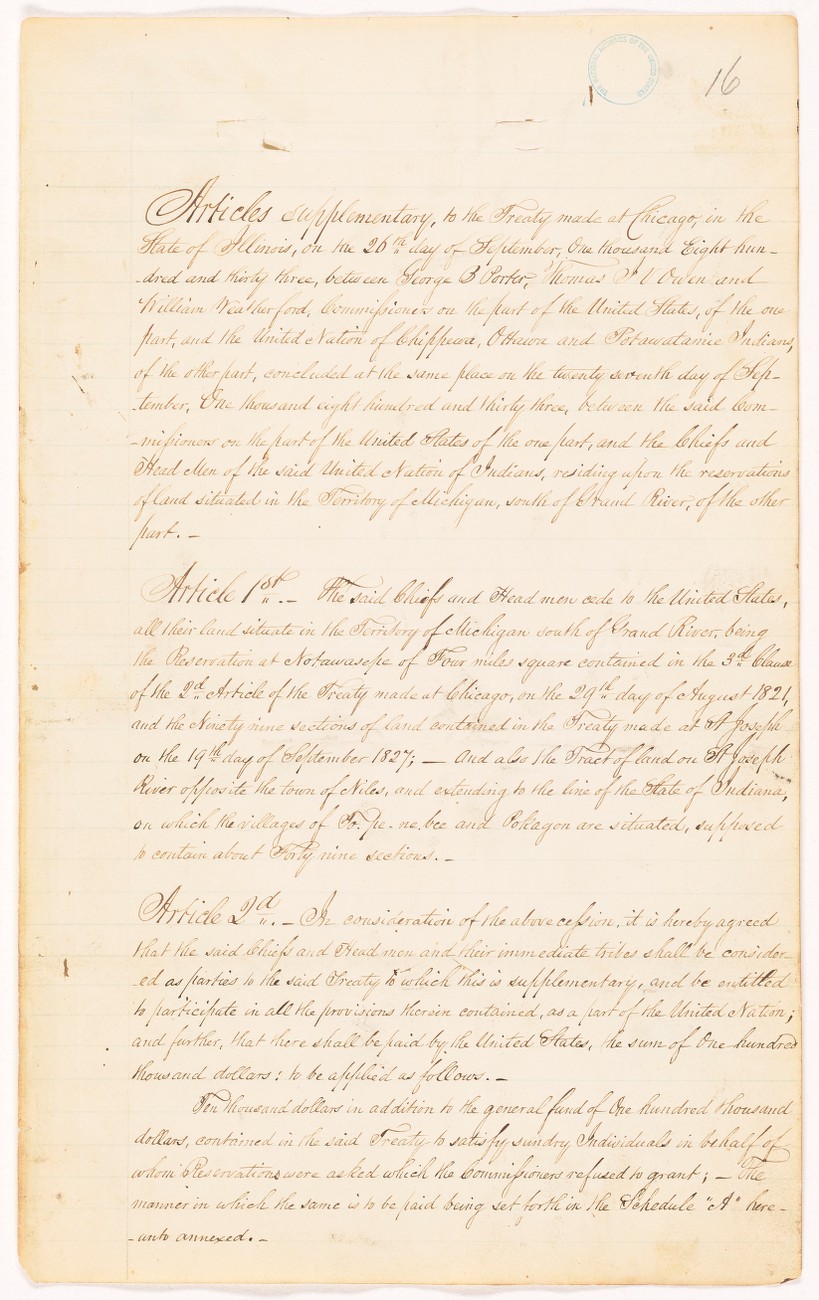 THE NATIONAL ARCHIVES OF THE UNITED STATES
16
Articles supplementary, to the Treaty made at Chicago, in the
State of Illinois, on the 26th day of September, One thousand Eight hun-
-dred and thirty three, between George B Porter, Thomas J V Owen and
William Weatherford, Commissioners on the part of the United States, of the one
part, and the United Nation of Chippewa, Ottawa and Potawatamie Indians,
of the other part, concluded at the same place on the twenty seventh day of Sep-
-tember, One thousand eight hundred and thirty three, between the said Com-
-missioners on the part of the United States of the one part, and the Chiefs and
Head Men of the said United Nation of Indians, residing upon the reservations
of land situated in the Territory of Michigan, south of Grand River, of the other
part. -
Article 1st. - The said Chiefs and Head men cede to the United States,
all their land situate in the Territory of Michigan south of Grand River, being
the Reservation at Notawasepe of Four miles square contained in the 3d Clause
of the 2d Article of the Treaty made at Chicago, on the 29th day of August 1821,
and the Ninety nine sections of land contained in the Treaty made at St Joseph
on the 19th day of September 1827; — And also the Tract of land on St Joseph
River opposite the town of Niles, and extending to the line of the State of Indiana,
on which the villages of To. pe. ne. bee and Pokagon are situated, supposed
to contain about Forty nine sections. -
Article 2d. - In consideration of the above cession, it is hereby agreed
that the said Chiefs and Head men and their immediate tribes shall be consider-
-ed as parties to the said Treaty to which this is supplementary, and be entitled
to participate in all the provisions therein contained, as a part of the United Nation;
and further, that there shall be paid by the United States, the sum of One hundred
thousand dollars: to be applied as follows. -
Ten thousand dollars in addition to the general fund of One hundred thousand
dollars, contained in the said Treaty to satisfy sundry Individuals in behalf of
whom Reservations were asked which the Commissioners refused to grant; — The
manner in which the same is to be paid being set forth in the Schedule "A" here-
-unto annexed. -